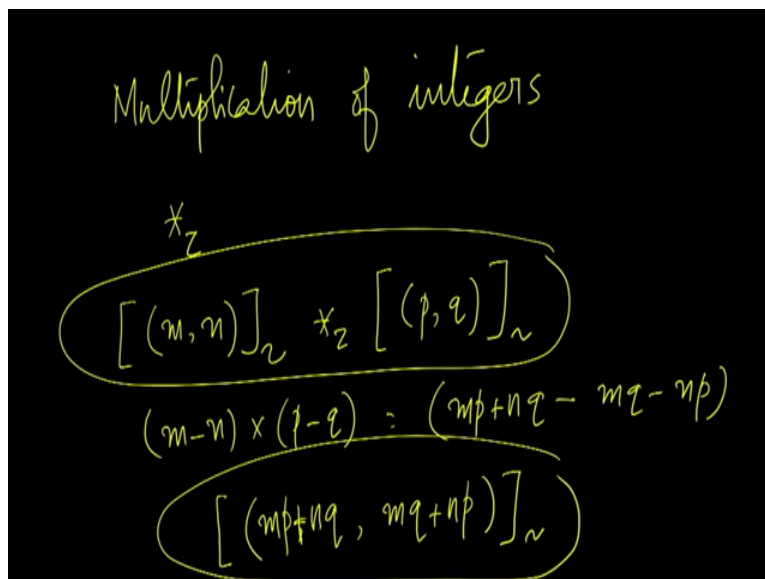 Multiplication of integers
*_Z
[(m,n)]_~ *_Z [(p,q)]_~
(m-n) × (p-q) = (mp+nq - mq-np)
[(mp+nq, mq+np)]_~